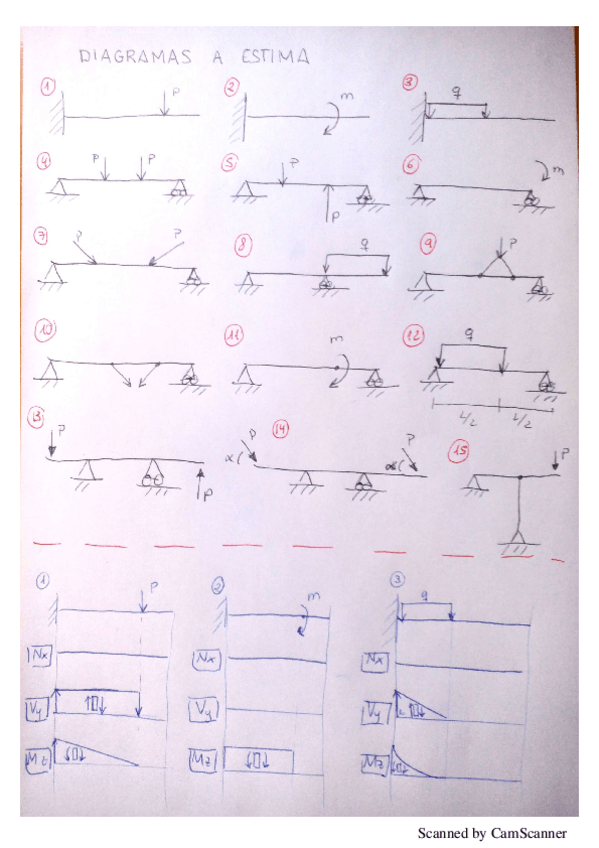 DIAGRAMAS A ESTIMA
1 P
2 m
3 q
4 P P
5 P P
6 m
7 P P
8 q
9 P
10
11 m
12 q
L/2 L/2
13 P P
14 P α α P
15 P
1 P
2 m
3 q
Nx Nx Nx
Vy Vy Vy
Mz Mz Mz
Scanned by CamScanner